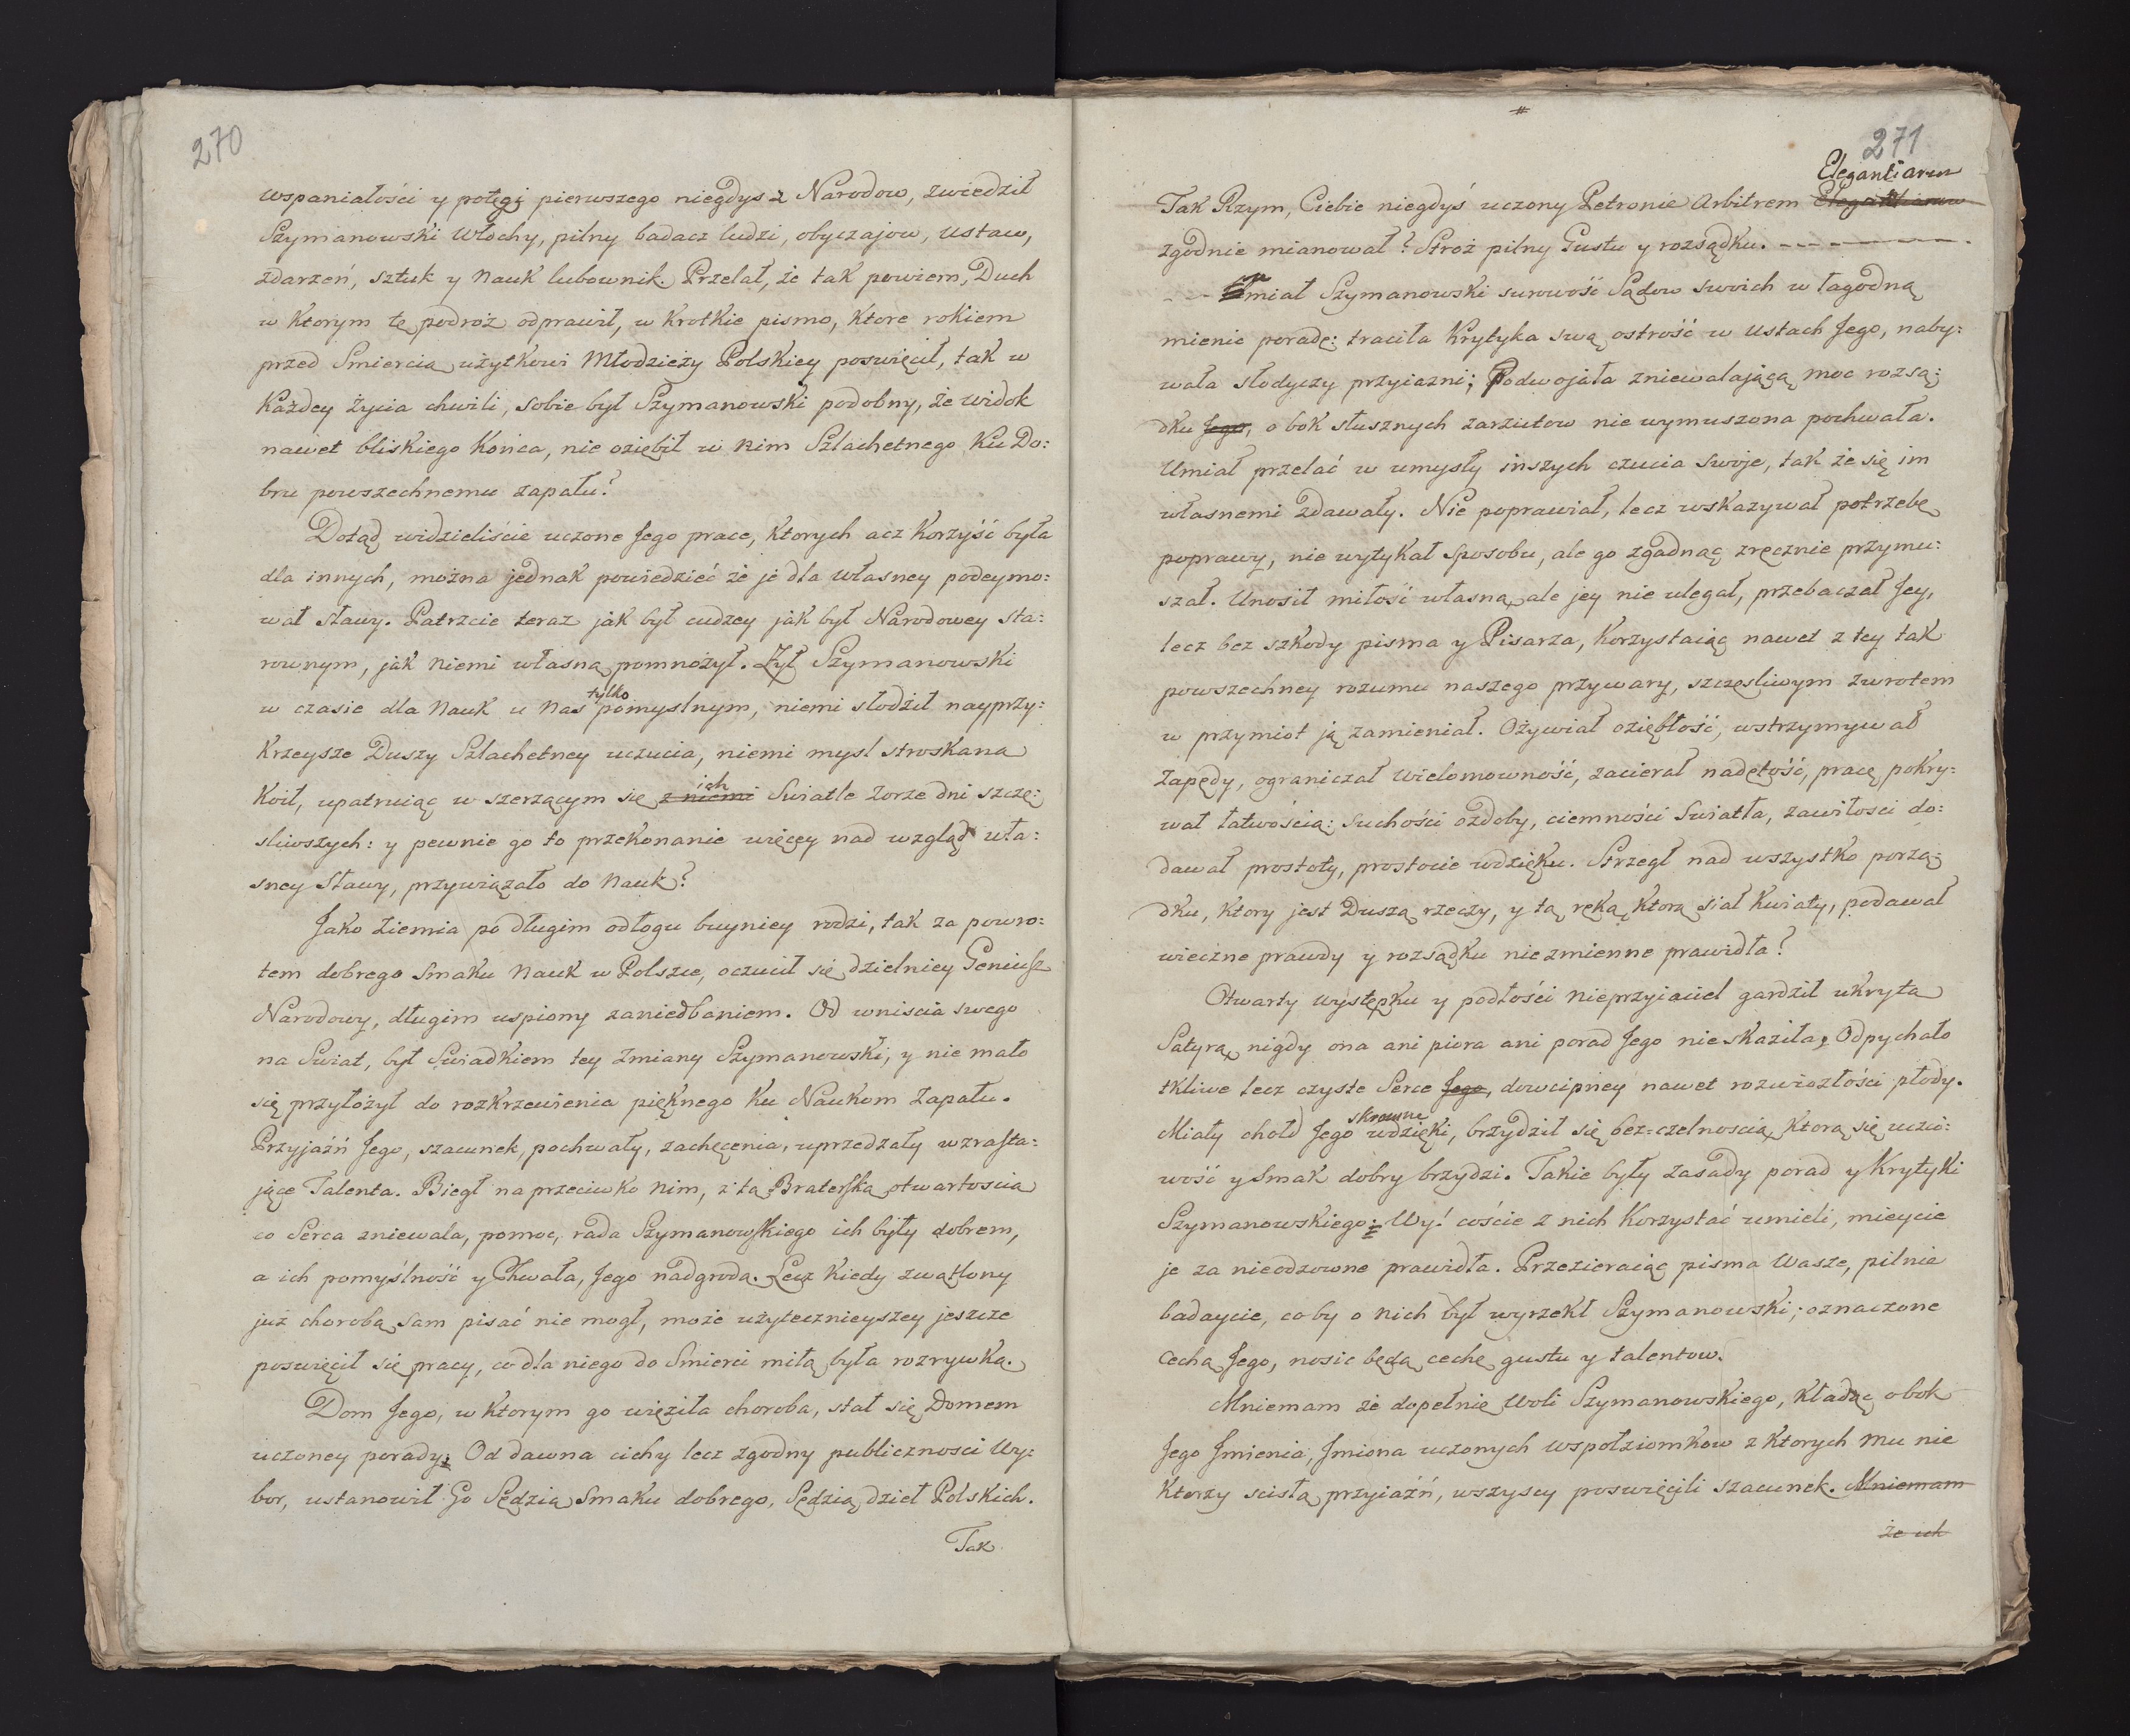 270
wspaniałości y potęgi pierwszego niegdys z Narodow, zwiedził
Szymanowski Włochy, pilny badacz ludzi, obyczajow, ustaw,
zdarzeń, sztuk y Nauk lubownik. Przelał, że tak powiem, Duch
w ktorym tę podroż odprawił, w krotkie pismo, ktore rokiem
przed Smiercią użytkowi Młodzieży Polskiey poswięcił, tak w
Każdey życia chwili, sobie był Szymanowski podobny, że widok
nawet bliskiego Końca, nie oziębił w nim Szlachetnego Ku Do:
bru powszechnemu zapału?
Dotąd widzieliście uczone Jego prace, ktorych acz Korzyść była
dla innych, można jednak powiedzieć że je dla własney podeymo:
wał sławy. Patrzcie teraz jak był cudzey jak był Narodowey sta:
rownym, jak niemi własną pomnożył. Żył Szymanowski
w czasie dla Nauk u Nas tylko pomyslnym, niemi słodził nayprzy:
krzeysze Duszy Szlachetney uczucia, niemi mysl stroskana
Koił, upatruiąc w szerzącym się z niemi ich Swiatle zorze dni szczę:
sliwszych: y pewnie go to przekonanie więcey nad wzgląd wła:
sney Sławy, przywiązało do Nauk?
Jako Ziemia po długim odłogu buyniey rodzi, tak za powro:
tem dobrego Smaku Nauk w Polszcze, ocucił się dzielniey Geniusz
Narodowy, długim uspiony zaniedbaniem. Od wniscia swego
na Swiat, był Swiadkiem tey zmiany Szymanowski, y nie mało
się przyłożył do rozkrzewienia pięknego ku Naukom Zapału.
Przyjaźń Jego, szacunek, pochwały, zachęcenia, uprzedzały wzrasta:
jące Talenta. Biegł naprzeciwko nim, z tą Braterską otwartoscią
co Serca zniewala, pomoc, rada Szymanowskiego ich były dobrem,
a ich pomyślność y Chwała, Jego nadgrodą. Lecz kiedy zwątlony
już chorobą sam pisać nie mogł, może użyteczniejszey jeszcze
poswięcił się pracy, co dla niego do Smierci miłą była rozrywką.
Dom Jego, w ktorym go więziła choroba, stał się Domem
uczoney porady; Od dawna cichy lecz zgodny publicznosci Wy:
bor, ustanowił Go Sędzią Smaku dobrego, Sędzią dzieł Polskich.
Tak
#
271
Elegantiarum
Tak Rzym, Ciebie niegdyś uczony Petronie Arbitrem Elegantiarum
zgodnie mianował? Stroż pilny Gustu y rozsądku. - - - - - - - - .
- - - Umiał Szymanowski surowość Sądow swoich w łagodną
mienic poradę: traciła Krytyka swą ostrość w Ustach Jego, naby:
wała słodyczy przyiazni; Podwojała zniewalającą moc rozsą:
dku Jego, obok słusznych zarzutow nie wymuszona pochwała.
Umiał przelać w umysły inszych czucia swoje, tak że się im
własnemi zdawały. Nie poprawiał, lecz wskazywał potrzebę
poprawy, nie wytykał sposobu, ale go zgadnąć zręcznie przymu:
szał. Unosił miłość własną, ale jey nie ulegał, przebaczał Jey,
lecz bez szkody pisma y Pisarza, korzystaiąc nawet z tey tak
powszechney rozumu naszego przywary, szczęsliwym zwrotem
w przymiot ją zamieniał. Ożywiał oziębłość, wstrzymywał
Zapędy, ograniczał wielomowność, zacierał nadętość, pracę pokry:
wał łatwością: Suchości ozdoby, ciemności Swiatła, zawiłosci do:
dawał prostoty, prostocie wdzięku. Strzegł nad wszystko porzą:
dku, ktory jest Duszą rzeczy, y tą ręką, ktorą siał kwiaty, podawał
wieczne prawdy y rozsądku niezmienne prawidła?
Otwarty występku y podłości nieprzyiaciel gardził ukrytą
Satyrą, nigdy ona ani piora ani porad Jego nieskaziła, Odpychało
tkliwe lecz czyste Serce Jego, dowcipney nawet rozwiozłości płody.
Miały chołd Jego skromne wdzięki, brzydził się bez=czelnoscią, ktorą się uczci:
wość y Smak dobry brzydzi. Takie były zasady porad y Krytyki
Szymanowskiego: Wy! coście z nich korzystać umieli, mieycie
je za nieodzowne prawidła. Przezieraiąc pisma Wasze, pilnie
badaycie, coby o nich był wyrzekł Szymanowski; oznaczone
Cechą Jego, nosic będą cechę gustu y talentow.
Mniemam że dopełnię Woli Szymanowskiego, kładąc obok
Jego Jmienia, Jmiona uczonych wspołziomkow z ktorych mu nie
ktorzy scisłą przyiaźń, wszyscy poswięcili szacunek. Mniemam
że ich